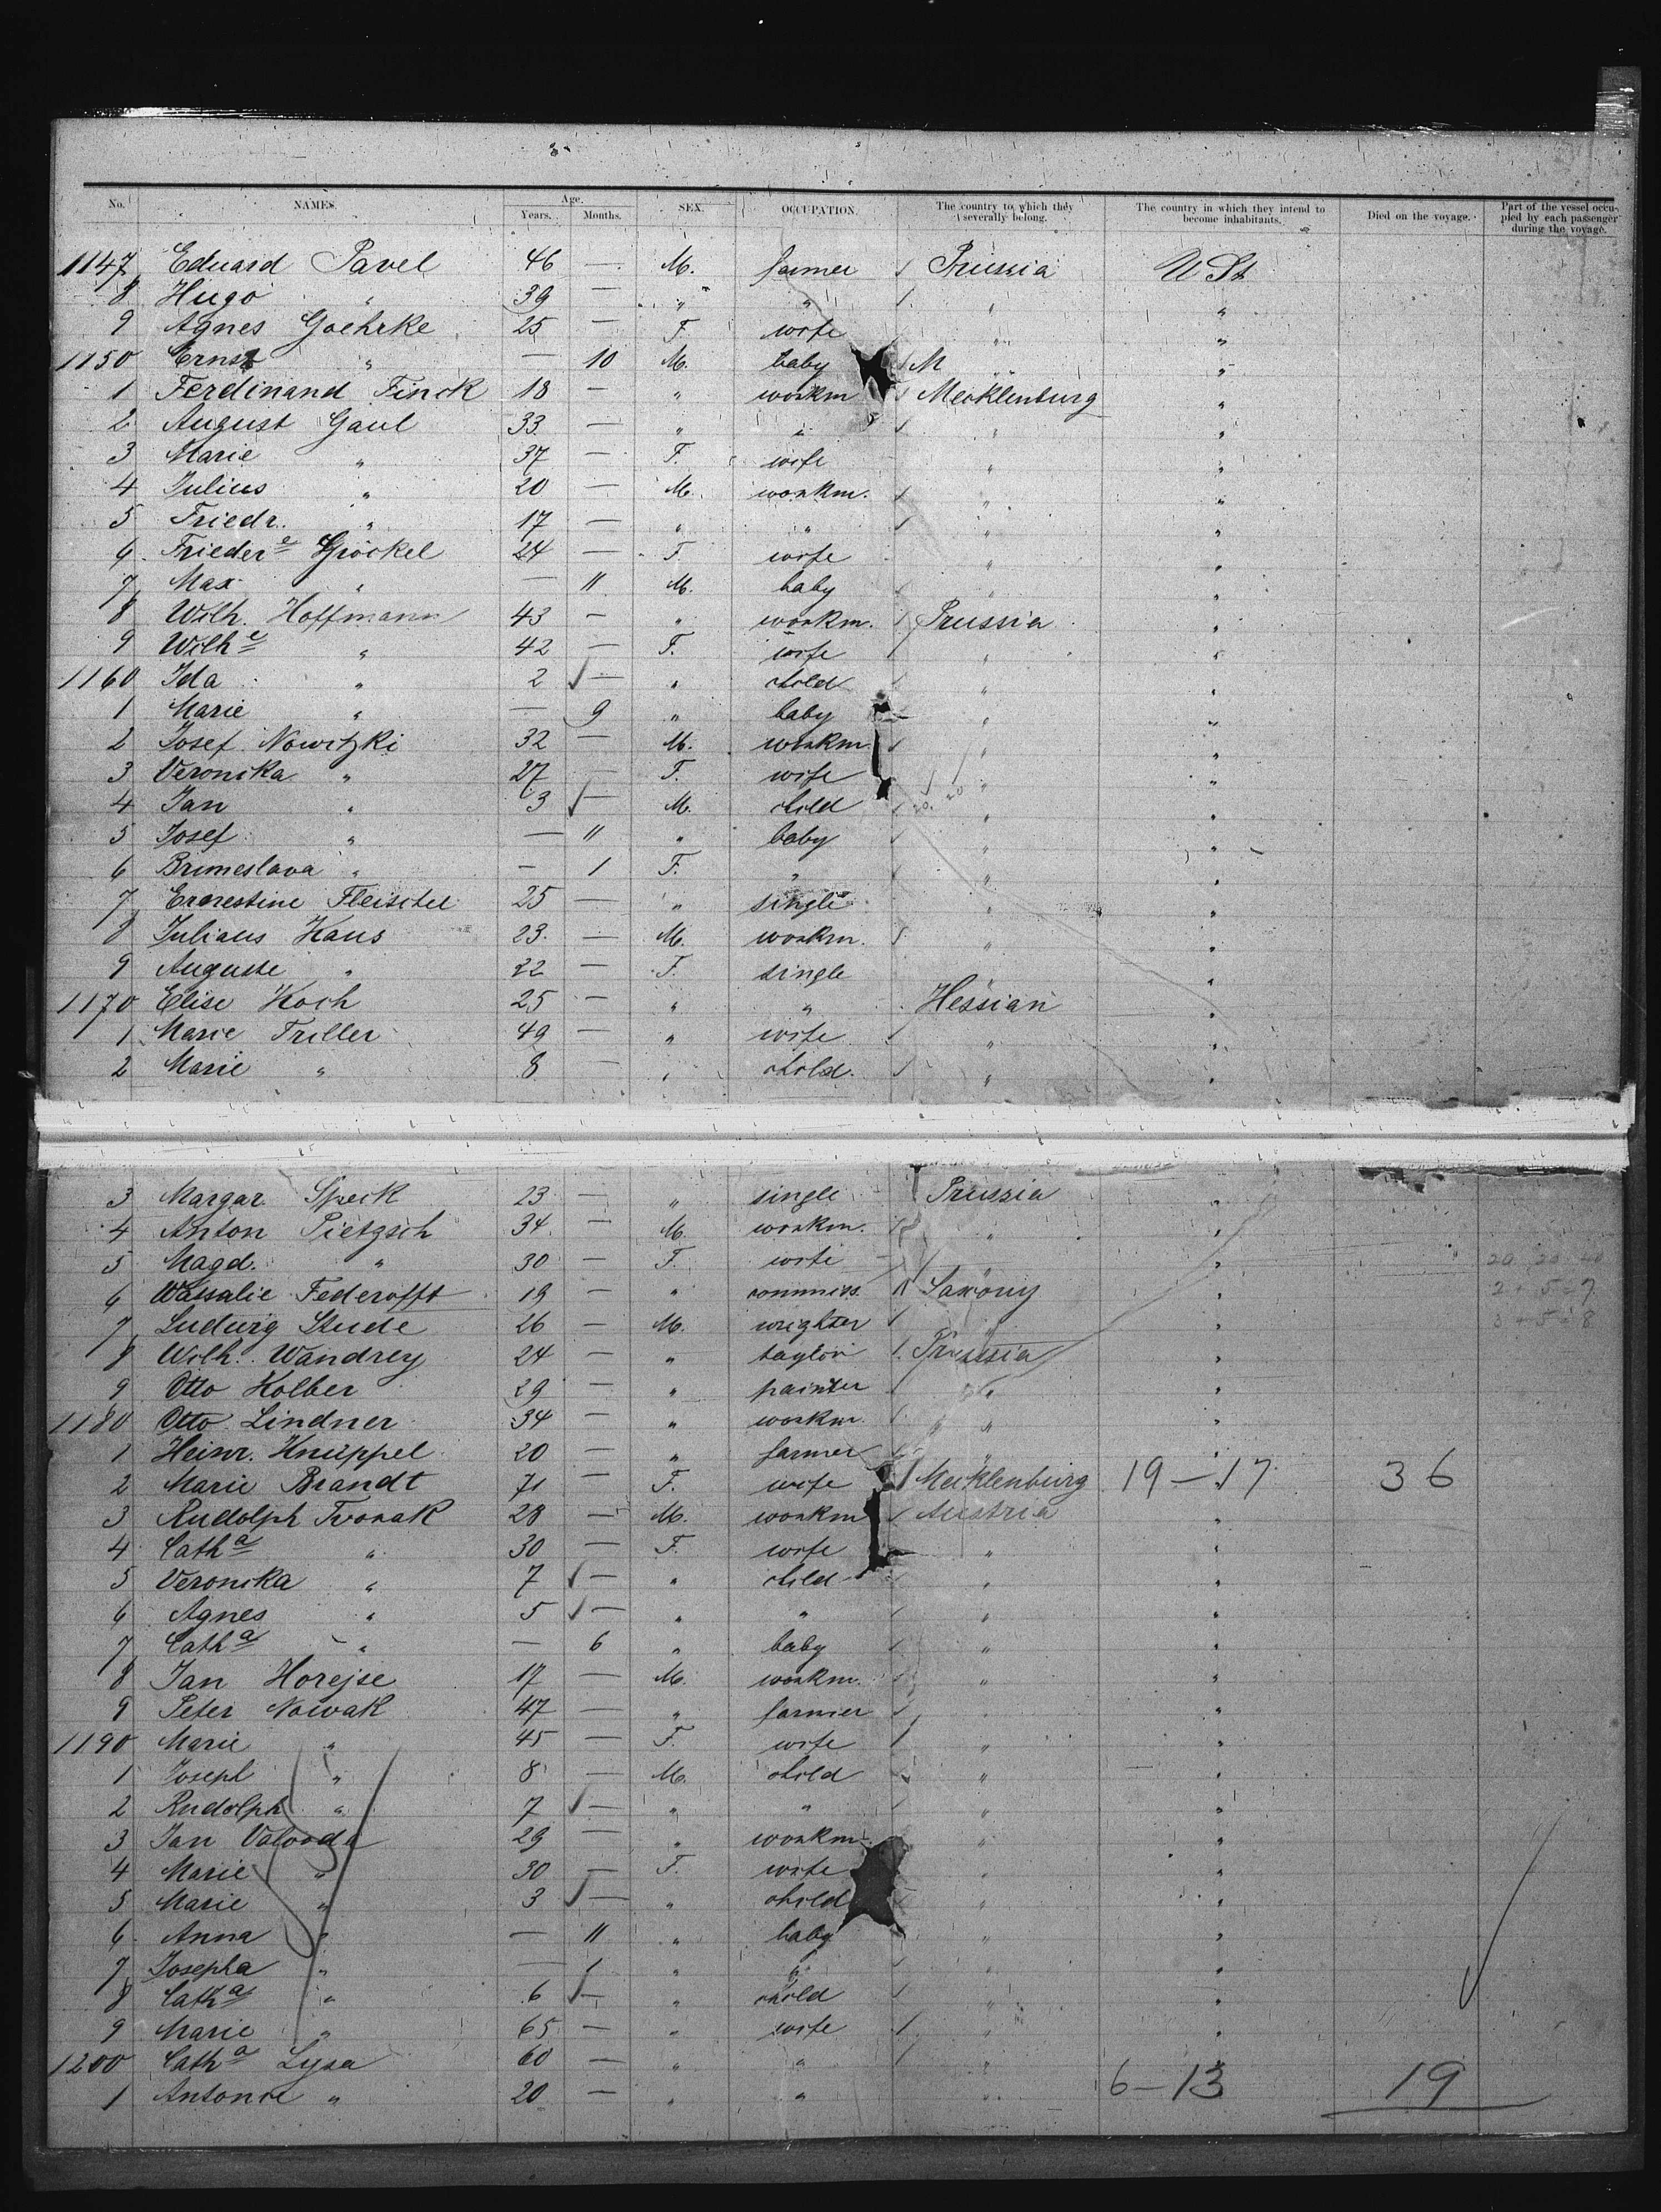 No. NAMES. Age. Years. Months. SEX. OCCUPATION. The country to which they severally belong. The country in which they intend to become inhabitants. Died on the voyage. Part of the vessel occupied by each passenger during the voyage.
1147 Eduard Pavel 46 — M. farmer Prussia U St
8 Hugo " 39 — " " " "
9 Agnes Goehrke 25 — F. wife " "
1150 Ernst " — 10 M. baby M " "
1 Ferdinand Finck 18 — " workm Mecklenburg "
2 August Gaul 33 — " " " "
3 Marie " 37 — F. wife " "
4 Julius " 20 — M. workm. " "
5 Friedr. " 17 — " " " "
6 Friedere Gröckel 24 — F. wife " "
7 Max " — 11 M. baby " "
8 Wilh. Hoffmann 43 — " workm. Prussia "
9 Wilhe " 42 — F. wife " "
1160 Ida " 2 — " child " "
1 Marie " — 9 " baby " "
2 Josef Nowitzki 32 — M. workm. " "
3 Veronika " 27 — F. wife " "
4 Jan " 3 — M. child " "
5 Josef " — 11 " baby " "
6 Brimeslava " — 1 F. " " "
7 Ernestine Fleischel 25 — " single " "
8 Julians Kaus 23 — M. workm. " "
9 Auguste " 22 — F. single " "
1170 Elise Koch 25 — " " Hessian "
1 Marie Triller 49 — " wife " "
2 Marie " 8 — " child. " "
3 Margar. Speck 23 — " single Prussia "
4 Anton Pietzsch 34 — M. workm. " "
5 Magd. " 30 — F. wife "
6 Wassalie Federofft 19 — " commiss. Saxony "
7 Ludwig Stude 26 — M. wrighter " "
8 Wilh. Wandrey 24 — " taylor Prussia "
9 Otto Kolber 29 — " painter " "
1180 Otto Lindner 34 — " workm. " "
1 Heinr. Knüppel 20 — " farmer " "
2 Marie Brandt 71 — F. wife Mecklenburg 19 — 17 36
3 Rudolph Tvorak 28 — M. workm Austria "
4 Catha " 30 — F. wife " "
5 Veronika " 7 — " child " "
6 Agnes " 5 — " " " "
7 Catha " — 6 " baby " "
8 Jan Horejse 17 — M. workm. " "
9 Peter Nowak 47 — " farmer " "
1190 Marie " 45 — F. wife " "
1 Joseph " 8 — M. child " "
2 Rudolph " 7 — " " " "
3 Jan Valvoda 29 — " workm. " "
4 Marie " 30 — F. wife " "
5 Marie " 3 — " child " "
6 Anna " — 11 " baby " "
7 Josepha " — 1 " " " "
8 Catha " 6 — " child " "
9 Marie " 65 — " wife " "
1200 Catha Lysa 60 — " " " "
1 Antonie " 20 — " " " 6 — 13 19